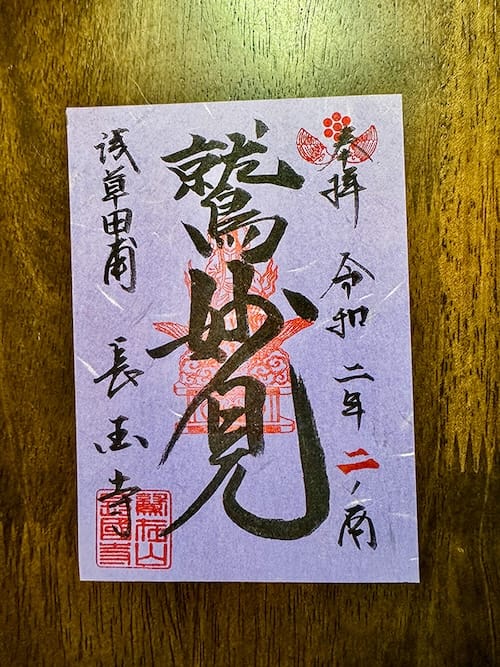 奉拝 令和二年二ノ酉
鷲妙見
浅草田甫 長国寺
鷲在山
長國寺